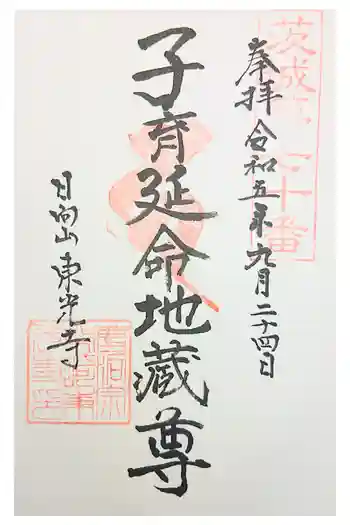 奉拝 令和五年九月二十四日
子育延命地蔵尊
日向山東光寺